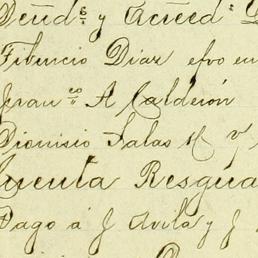 Deud.s y Acreed.s
Filencio Diaz efvo en
Fran.co A Calderón
Dionisio Salas M v
Cuenta Resgua
Pago á J Avila y J